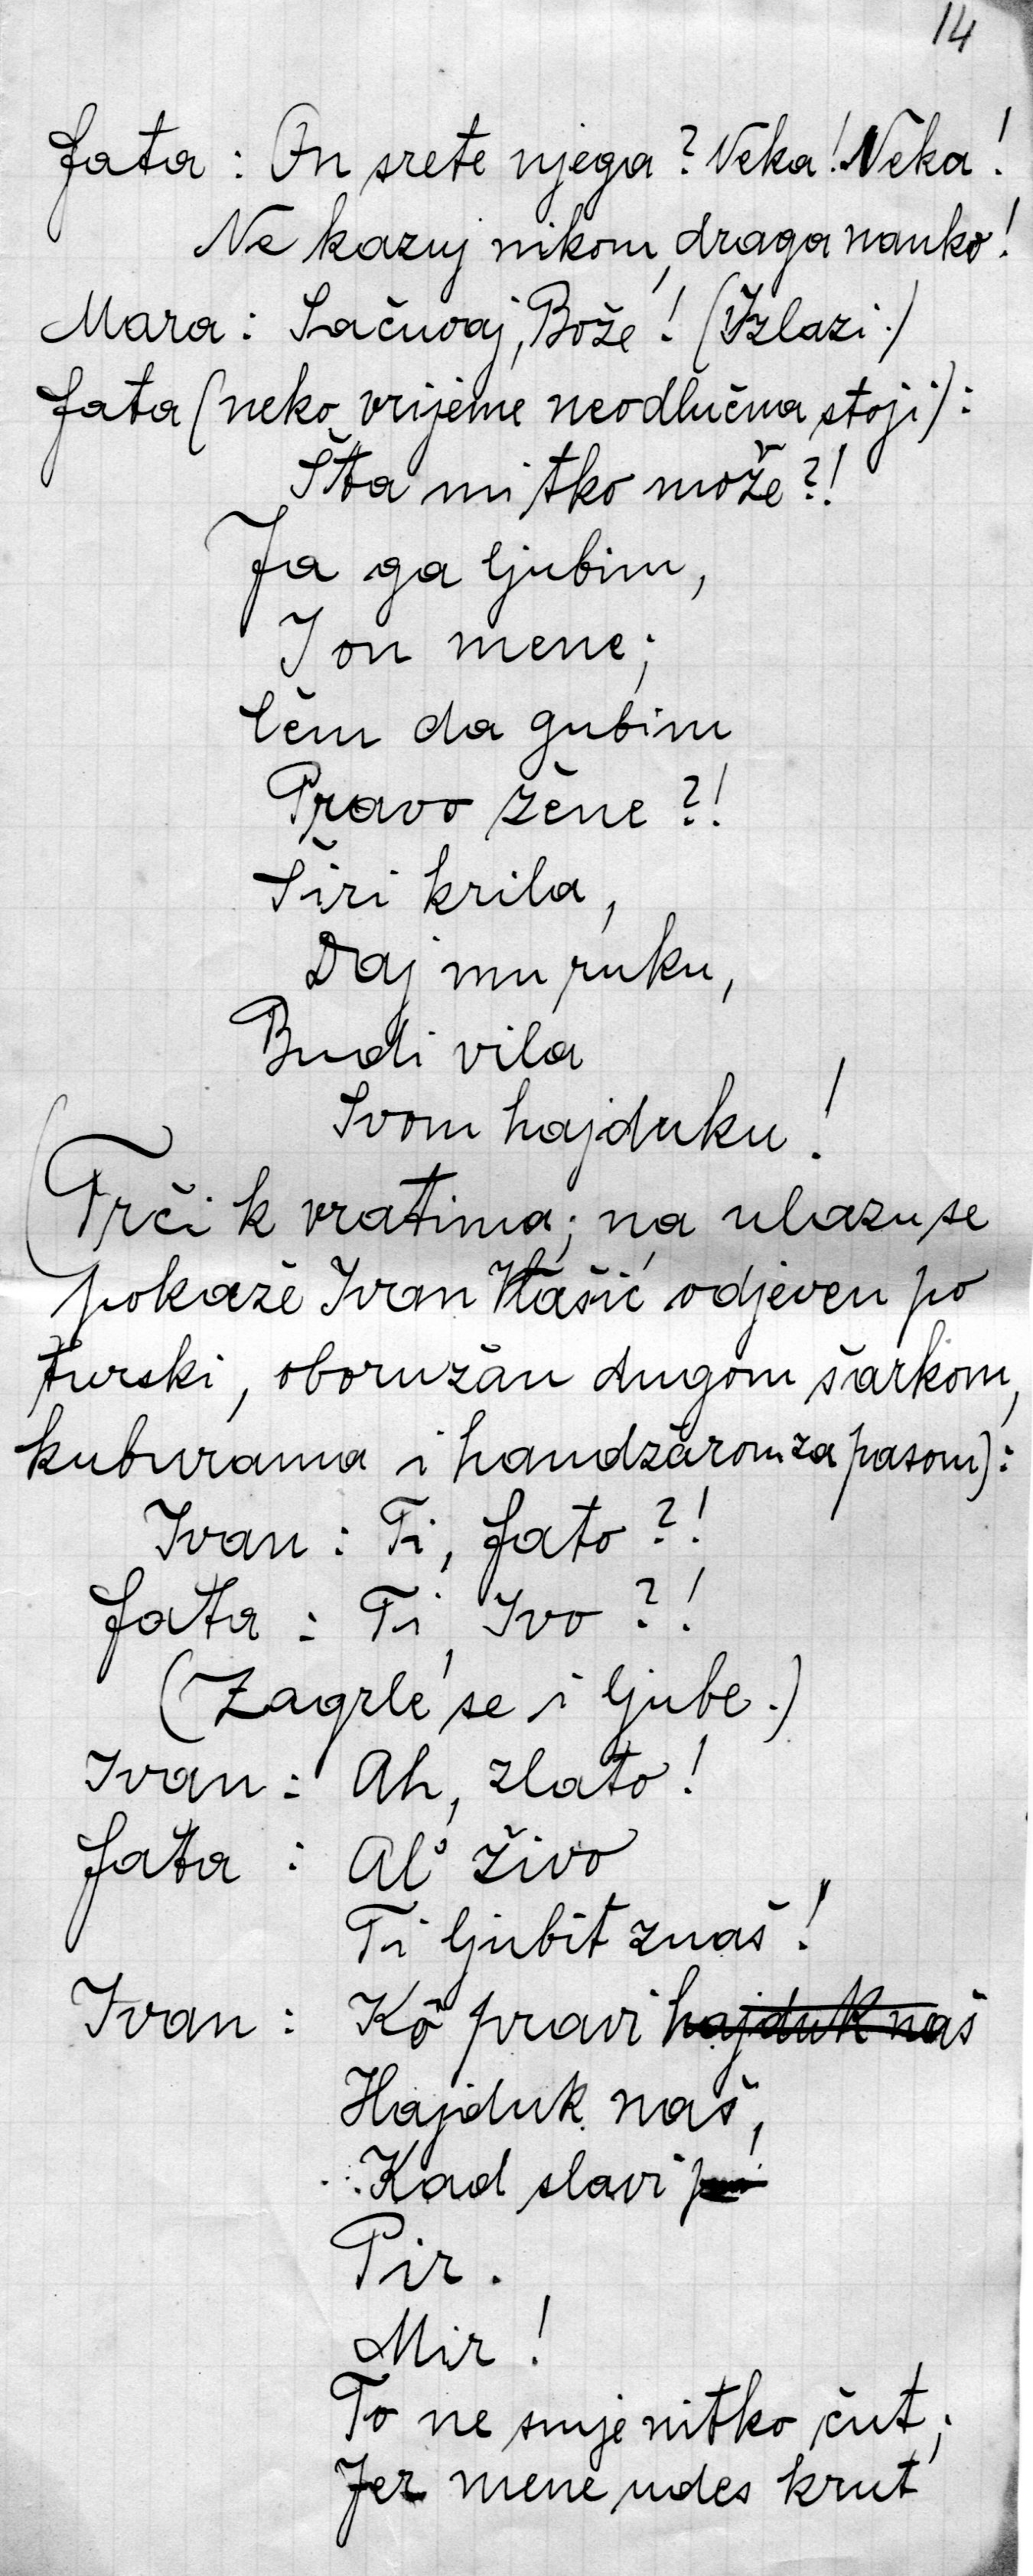 14
Fata : On srete njega? Neka! Neka!
Ne kazuj nikom, draga nanko!
Mara : Sačuvaj, Bože! (Izlazi.)
Fata (neko vrijeme neodlučna stoji):
Šta mi tko može?!
Ja ga ljubim,
I on mene;
Čem da gubim
Pravo žene?!
Širi krila,
Daj mu ruku,
Budi vila
Svom hajduku!
(Trči k vratima; na ulazu se
pokaže Ivan Klašić odjeven po
turski, oboružan dugom šarkom,
kuburama i handžarom za pasom):
Ivan : Ti, Fato?!
Fata : Ti, Ivo?!
(Zagrle se i ljube.)
Ivan : Ah, zlato!
Fata : Al' živo
Ti ljubit znaš!
Ivan : Kô pravi hajduk naš
Hajduk naš,
Kad slavi
Pir.
Mir!
To ne smije nitko čut,
Jer mene udes krut